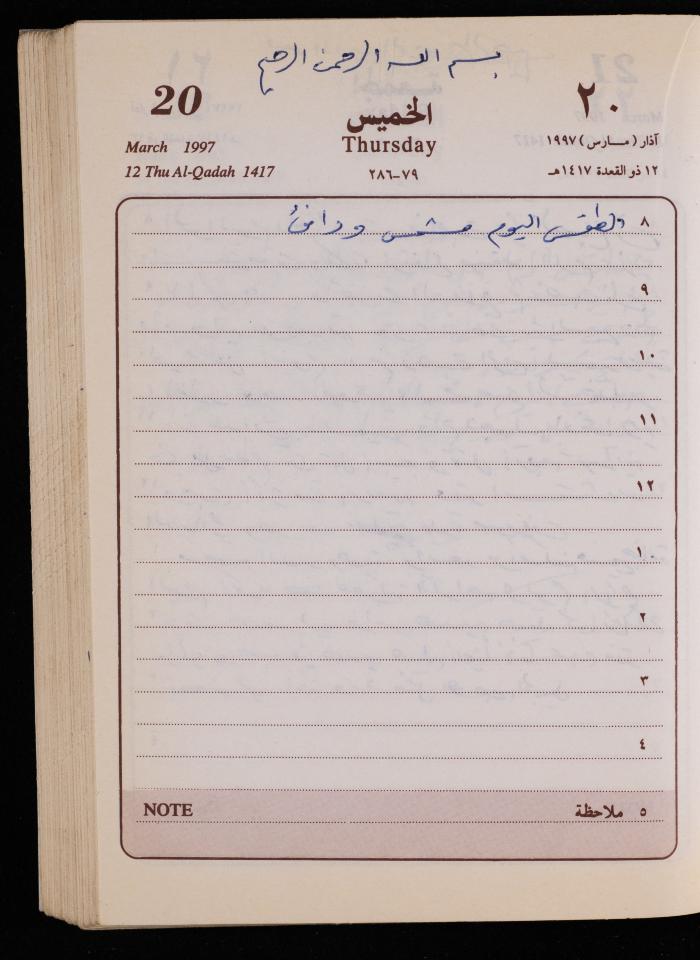 بسم الله الرحمن الرحيم
20
٢٠
الخميس
Thursday
March 1997
آذار (مارس) ١٩٩٧
12 Thu Al-Qadah 1417
٧٩-٢٨٦
١٢ ذو القعدة ١٤١٧هـ
٨ الطقس اليوم مشمس ودافئ
٩
١٠
١١
١٢
١
٢
٣
٤
NOTE ٥ ملاحظة